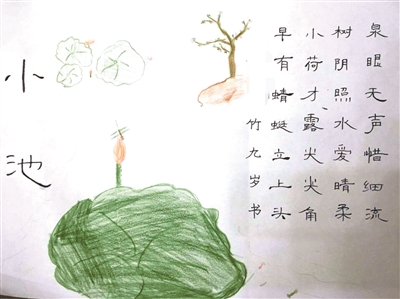 小池
泉眼无声惜细流
树阴照水爱晴柔
小荷才露尖尖角
早有蜻蜓立上头
竹九岁书